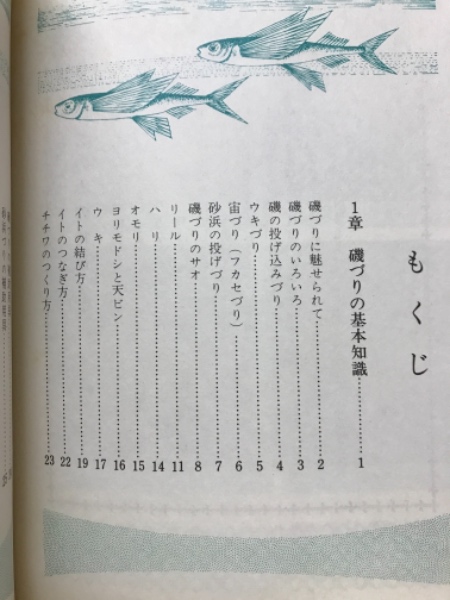 もくじ
1章 磯づりの基本知識……………1
磯づりに魅せられて……………2
磯づりのいろいろ……………3
磯の投げ込みづり……………4
ウキづり……………5
宙づり（フカセづり）……………6
砂浜の投げづり……………7
磯づりのサオ……………8
リール……………11
ハリ……………14
オモリ……………15
ヨリモドシと天ビン……………16
ウキ……………17
イトの結び方……………19
イトのつなぎ方……………22
チチワのつくり方……………23